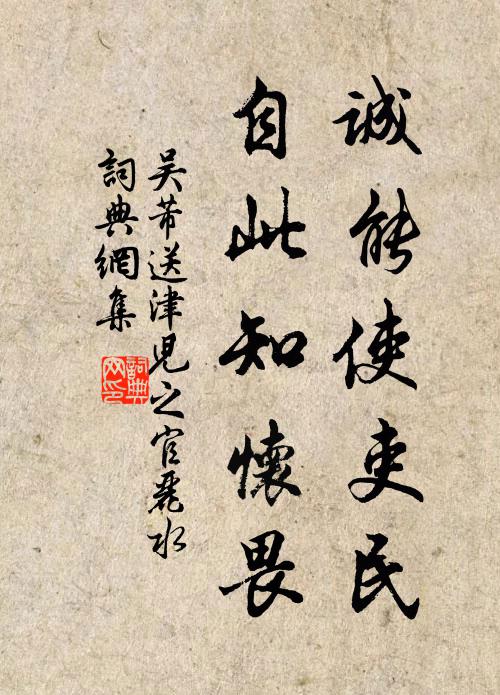 誠能使吏民
自此知懷畏
吴芾送津兒之官麗水
詞典網集
詞典
网印